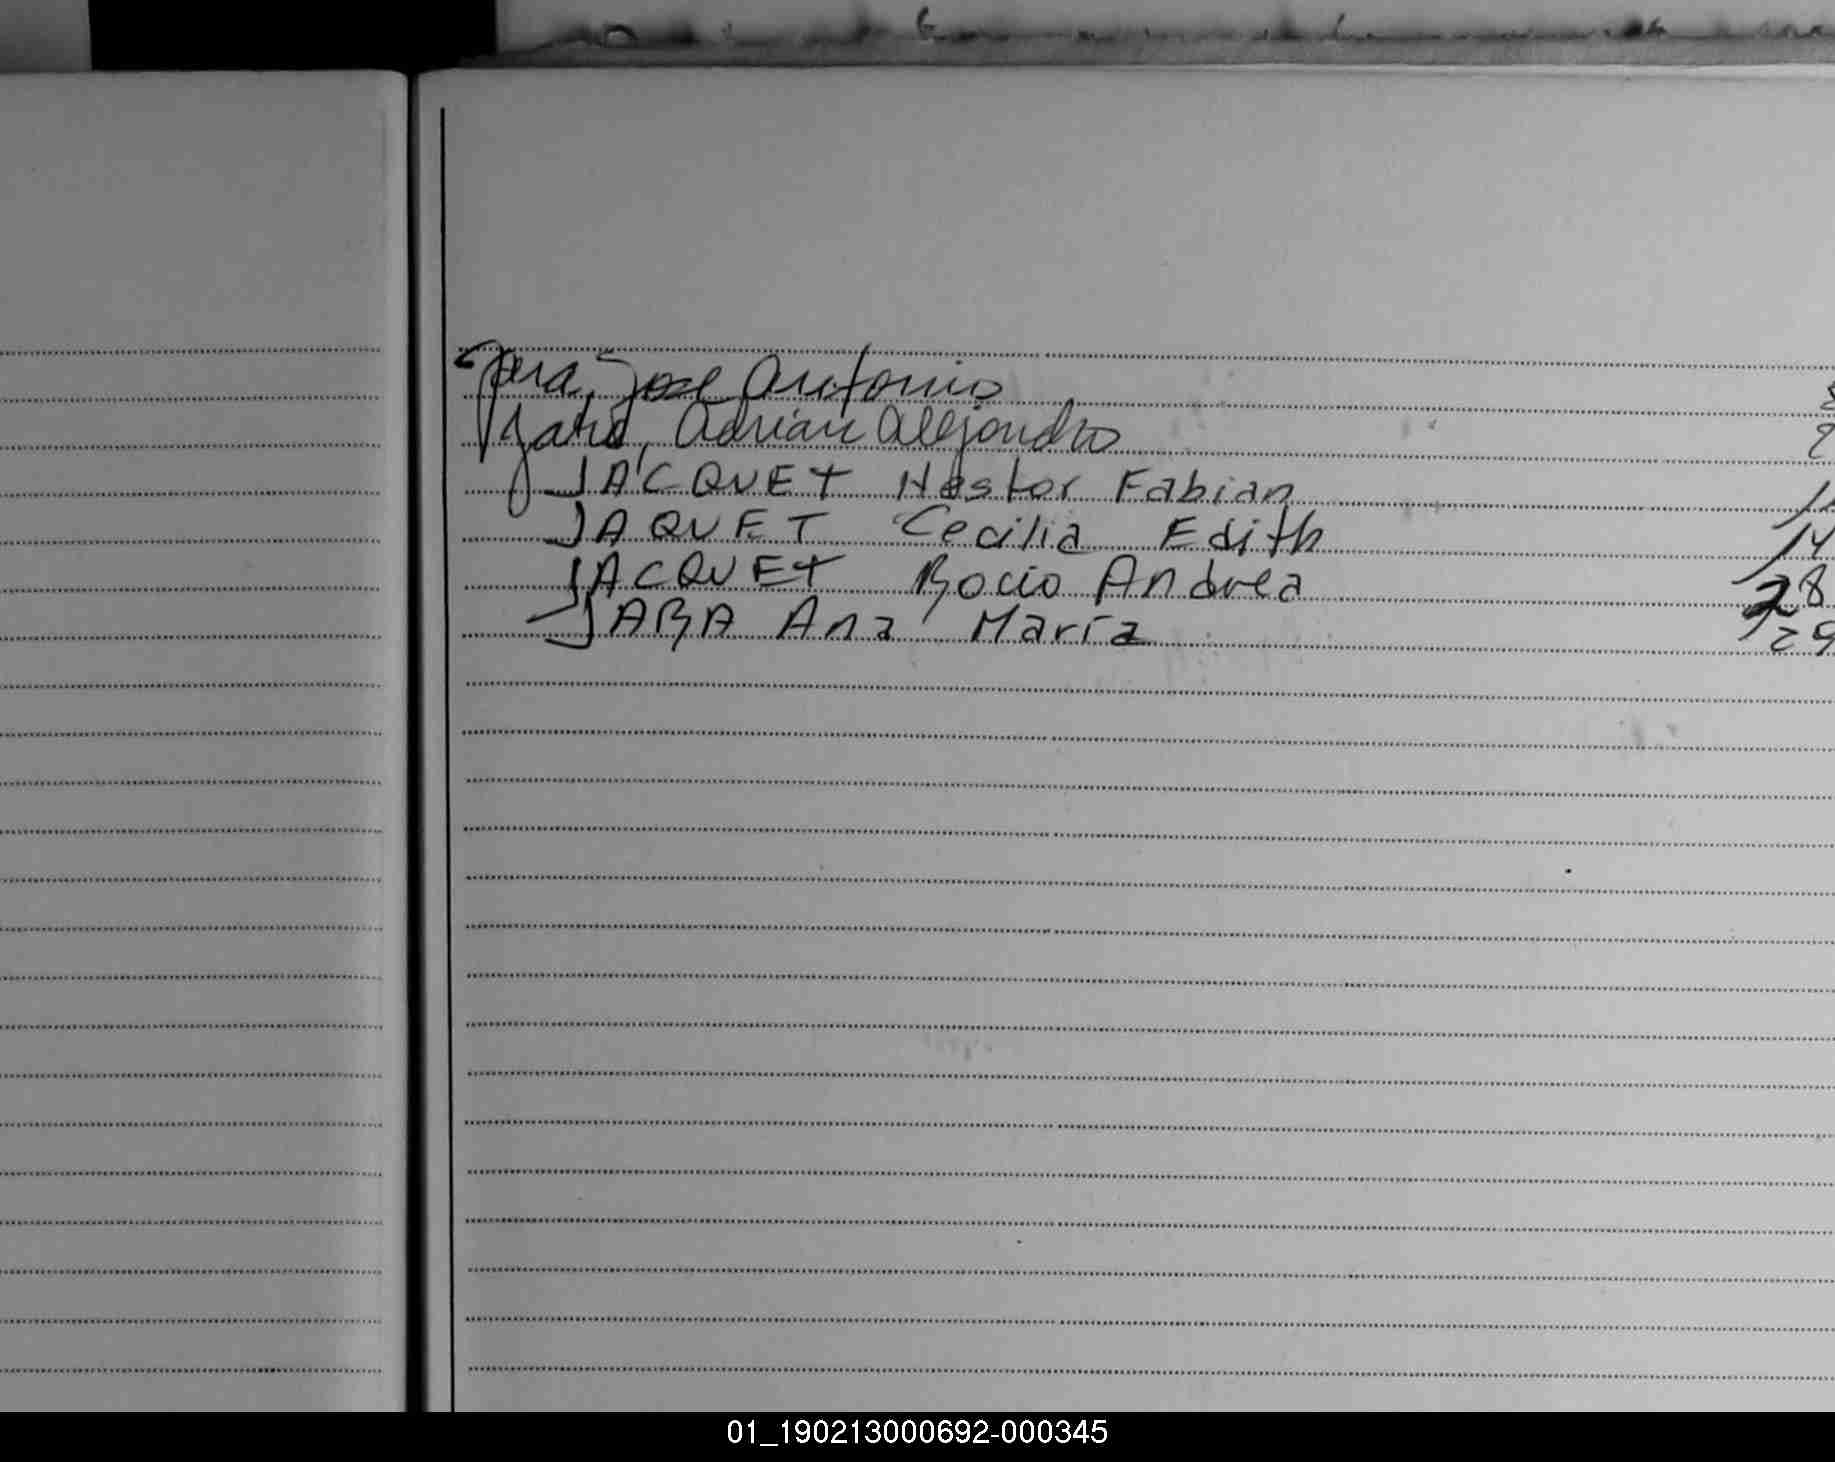 Jara, Jose Antonio
Adrián Alejandro
JACQUET Nestor Fabian
JAQUET Cecilia Edith 14
JACQUET Rocio Andrea 28
JARA Ana Maria 29
01_190213000692-000345